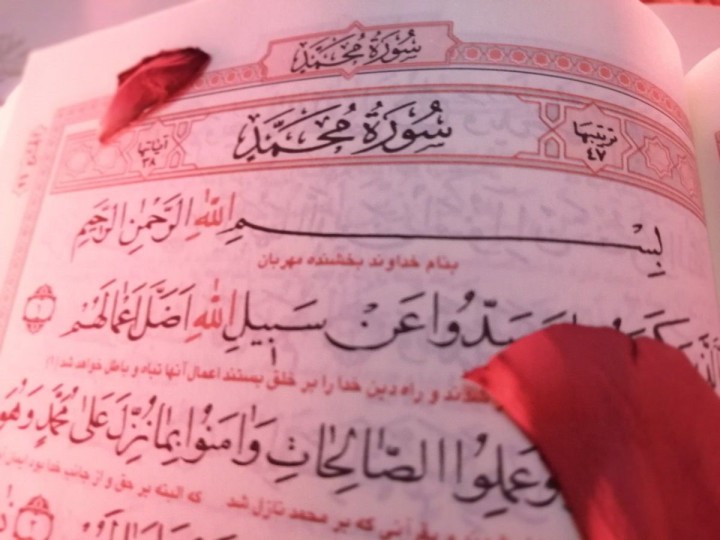 سُورَةُ مُحَمَّدٍ
ترتيبها ٤٧
سُورَةُ مُحَمَّدٍ
آياتها ٣٨
بِسْمِ اللهِ الرَّحْمٰنِ الرَّحيمِ
بنام خداوند بخشنده مهربان
عَنْ سَبيلِ اللهِ اَضَلَّ اَعْمالَهُمْ ١
و راه دین خدا را بر خلق بستند اعمال آنها تباه و باطل خواهد شد (۱)
وَعَمِلُوا الصّالِحاتِ وَاٰمَنُوا بِما نُزِّلَ عَلىٰ مُحَمَّدٍ وَهُوَ
که بر محمد نازل شد که البته بر حق و از جانب خدا بود ایمان
٢